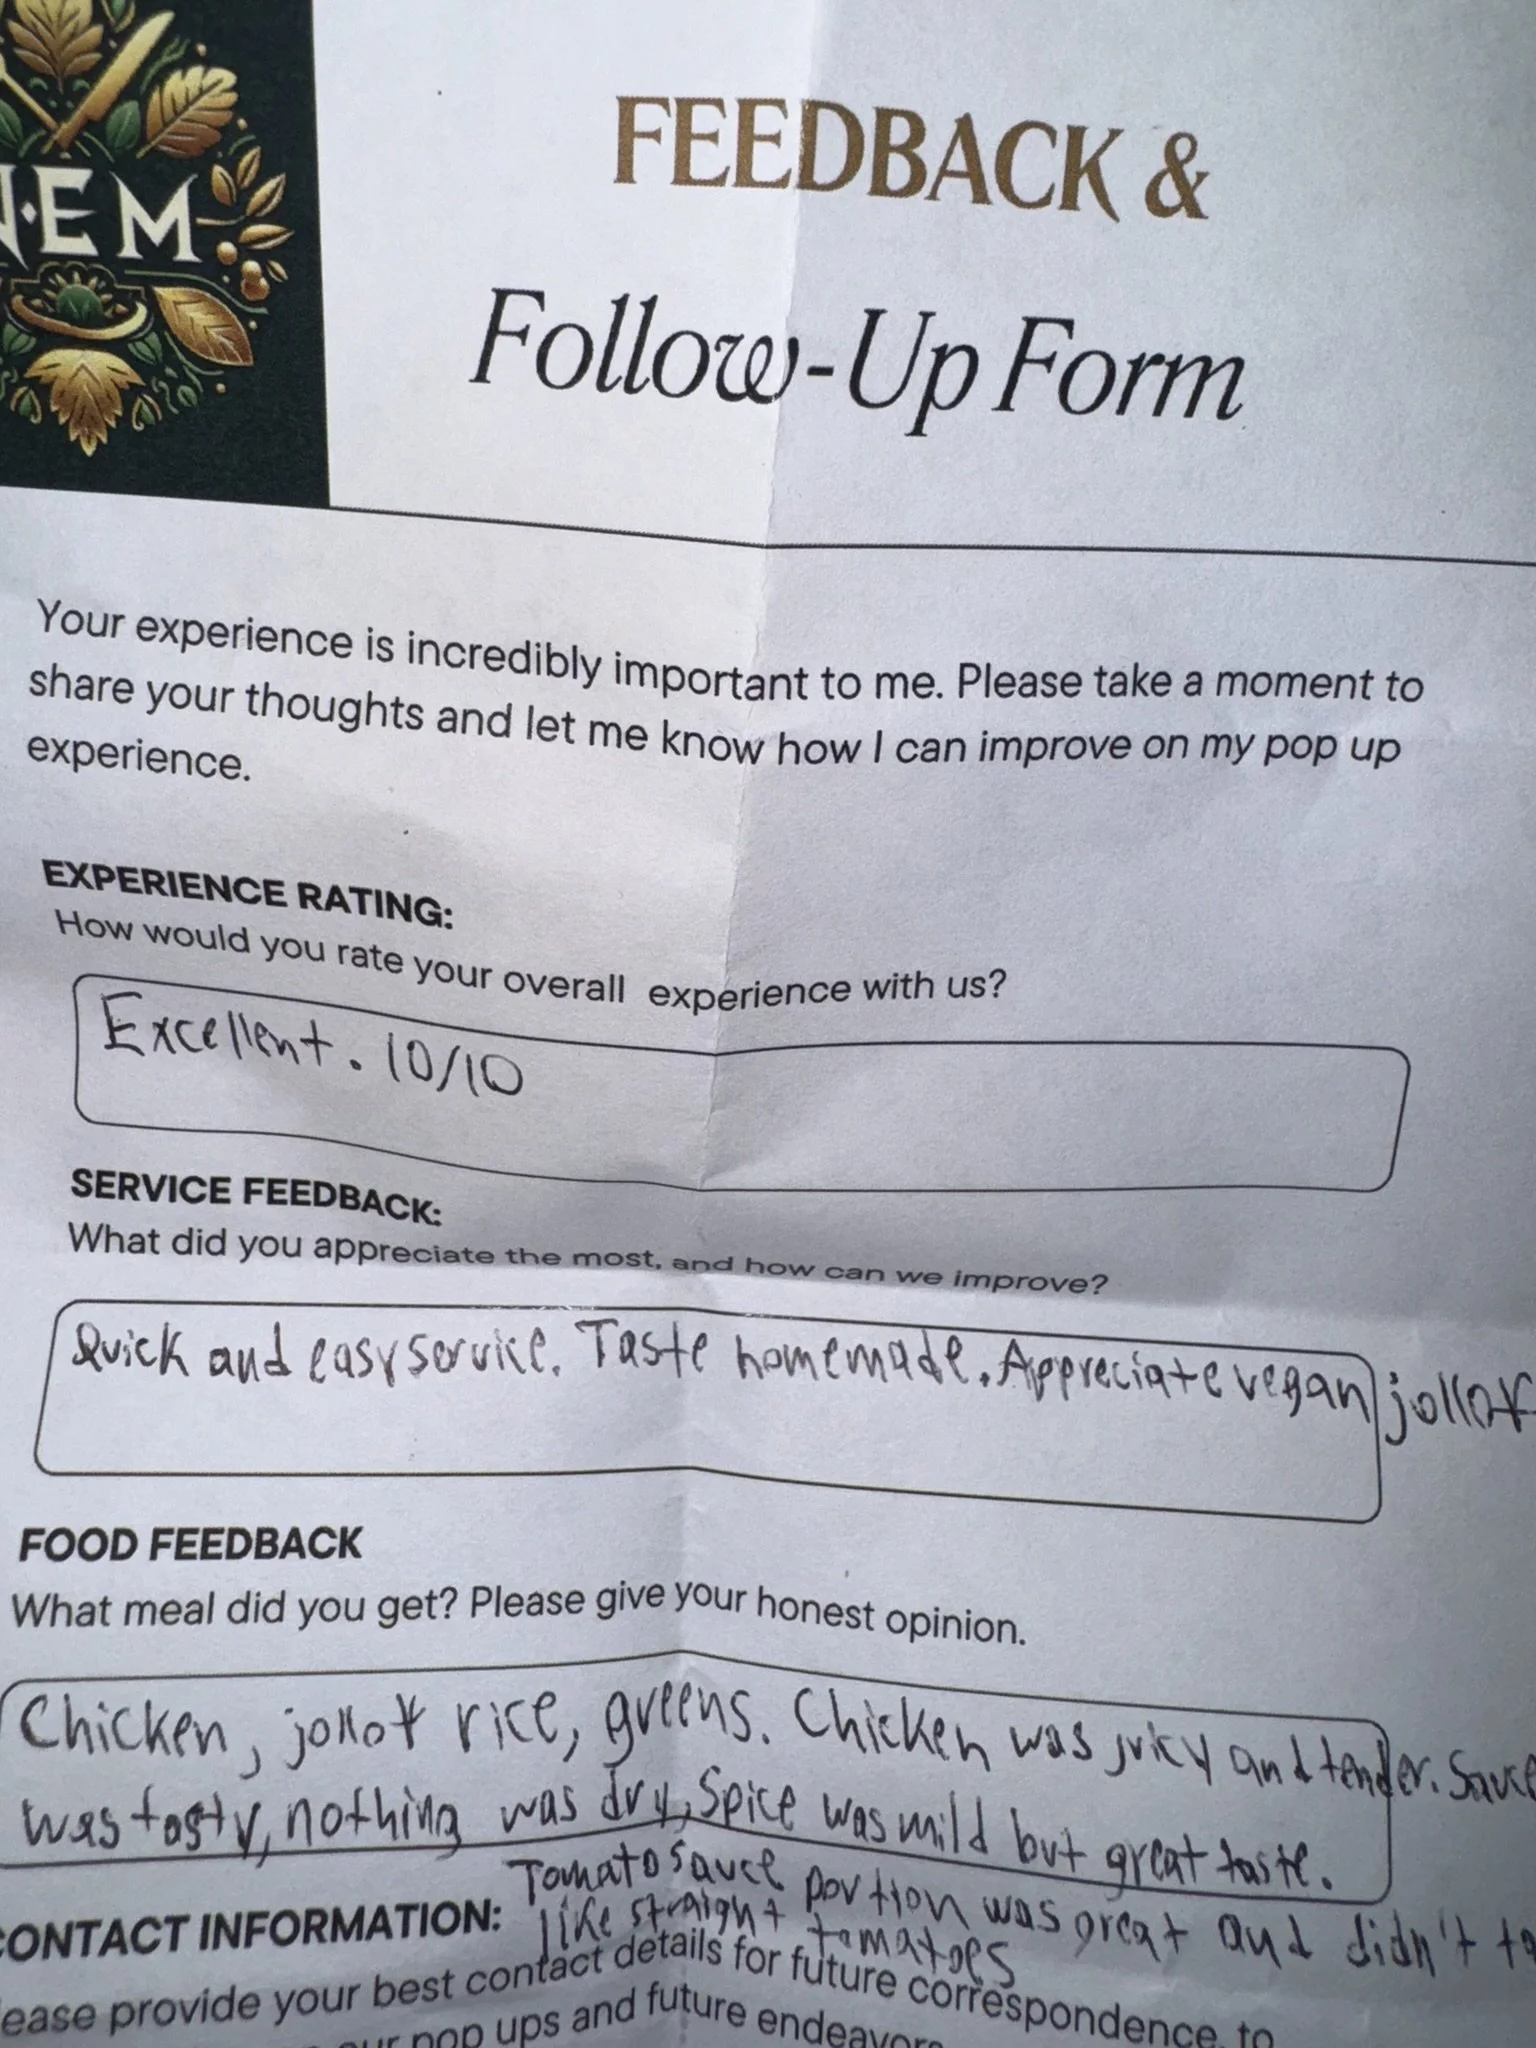 EM
FEEDBACK &
Follow-Up Form
Your experience is incredibly important to me. Please take a moment to
share your thoughts and let me know how I can improve on my pop up
experience.
EXPERIENCE RATING:
How would you rate your overall experience with us?
Excellent. 10/10
SERVICE FEEDBACK:
What did you appreciate the most, and how can we improve?
Quick and easy service. Taste homemade. Appreciate vegan jollof
FOOD FEEDBACK
What meal did you get? Please give your honest opinion.
Chicken, jollof rice, greens. Chicken was juicy and tender. Sauce
was tasty, nothing was dry, Spice was mild but great taste.
Tomato sauce portion was great and didn't ta
like straight tomatoes
CONTACT INFORMATION:
ease provide your best contact details for future correspondence, to
our pop ups and future endeavors